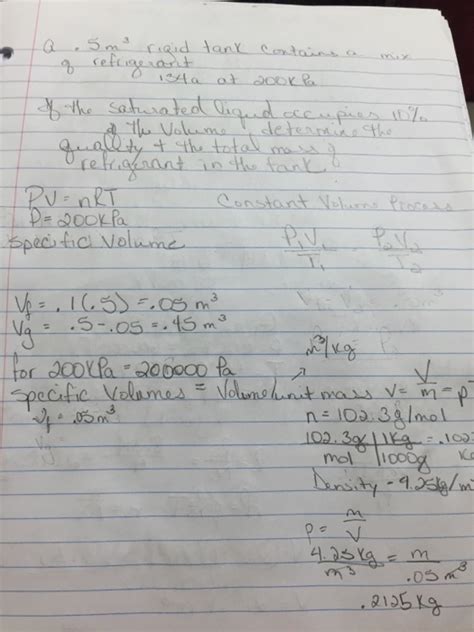 a .5m³ rigid tank contains a mix
of refrigerant
134a at 200KPa
If the saturated liquid occupies 10%
of the Volume, determine the
quality + the total mass of
refrigerant in the tank.
PV = nRT
Constant Volume Process
P = 200KPa
Specific Volume
P₁V₁ P₂V₂
T₁ T₂
Vf = .1(.5) = .05 m³
Vg = .5-.05 = .45 m³
m³/Kg
for 200KPa = 200000 Pa
Specific Volumes = Volume/unit mass v = V/m = p
Vf = .05m³
Vg
n = 102.3g/mol
102.3g | 1Kg = .102
mol | 1000g K
Density - 4.25kg/m
p = m/V
4.25Kg = m
m³ .05 m³
.2125Kg